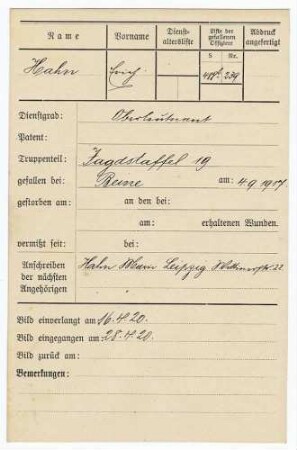 Name Vorname Dienst-altersliste Liste der gefallenen Offiziere Abdruck angefertigt
S. Nr.
Hahn Erich 239
Dienstgrad: Oberleutnant
Patent:
Truppenteil: Jagdstaffel 19
gefallen bei: Beine am: 4 9 1917
gestorben am: an den bei:
am: erhaltenen Wunden.
vermißt seit: bei:
Anschreiben Hahn Leipzig 22
der nächsten
Angehörigen
Bild einverlangt am 16.4.20.
Bild eingegangen am 28.4.20.
Bild zurück am:
Bemerkungen: